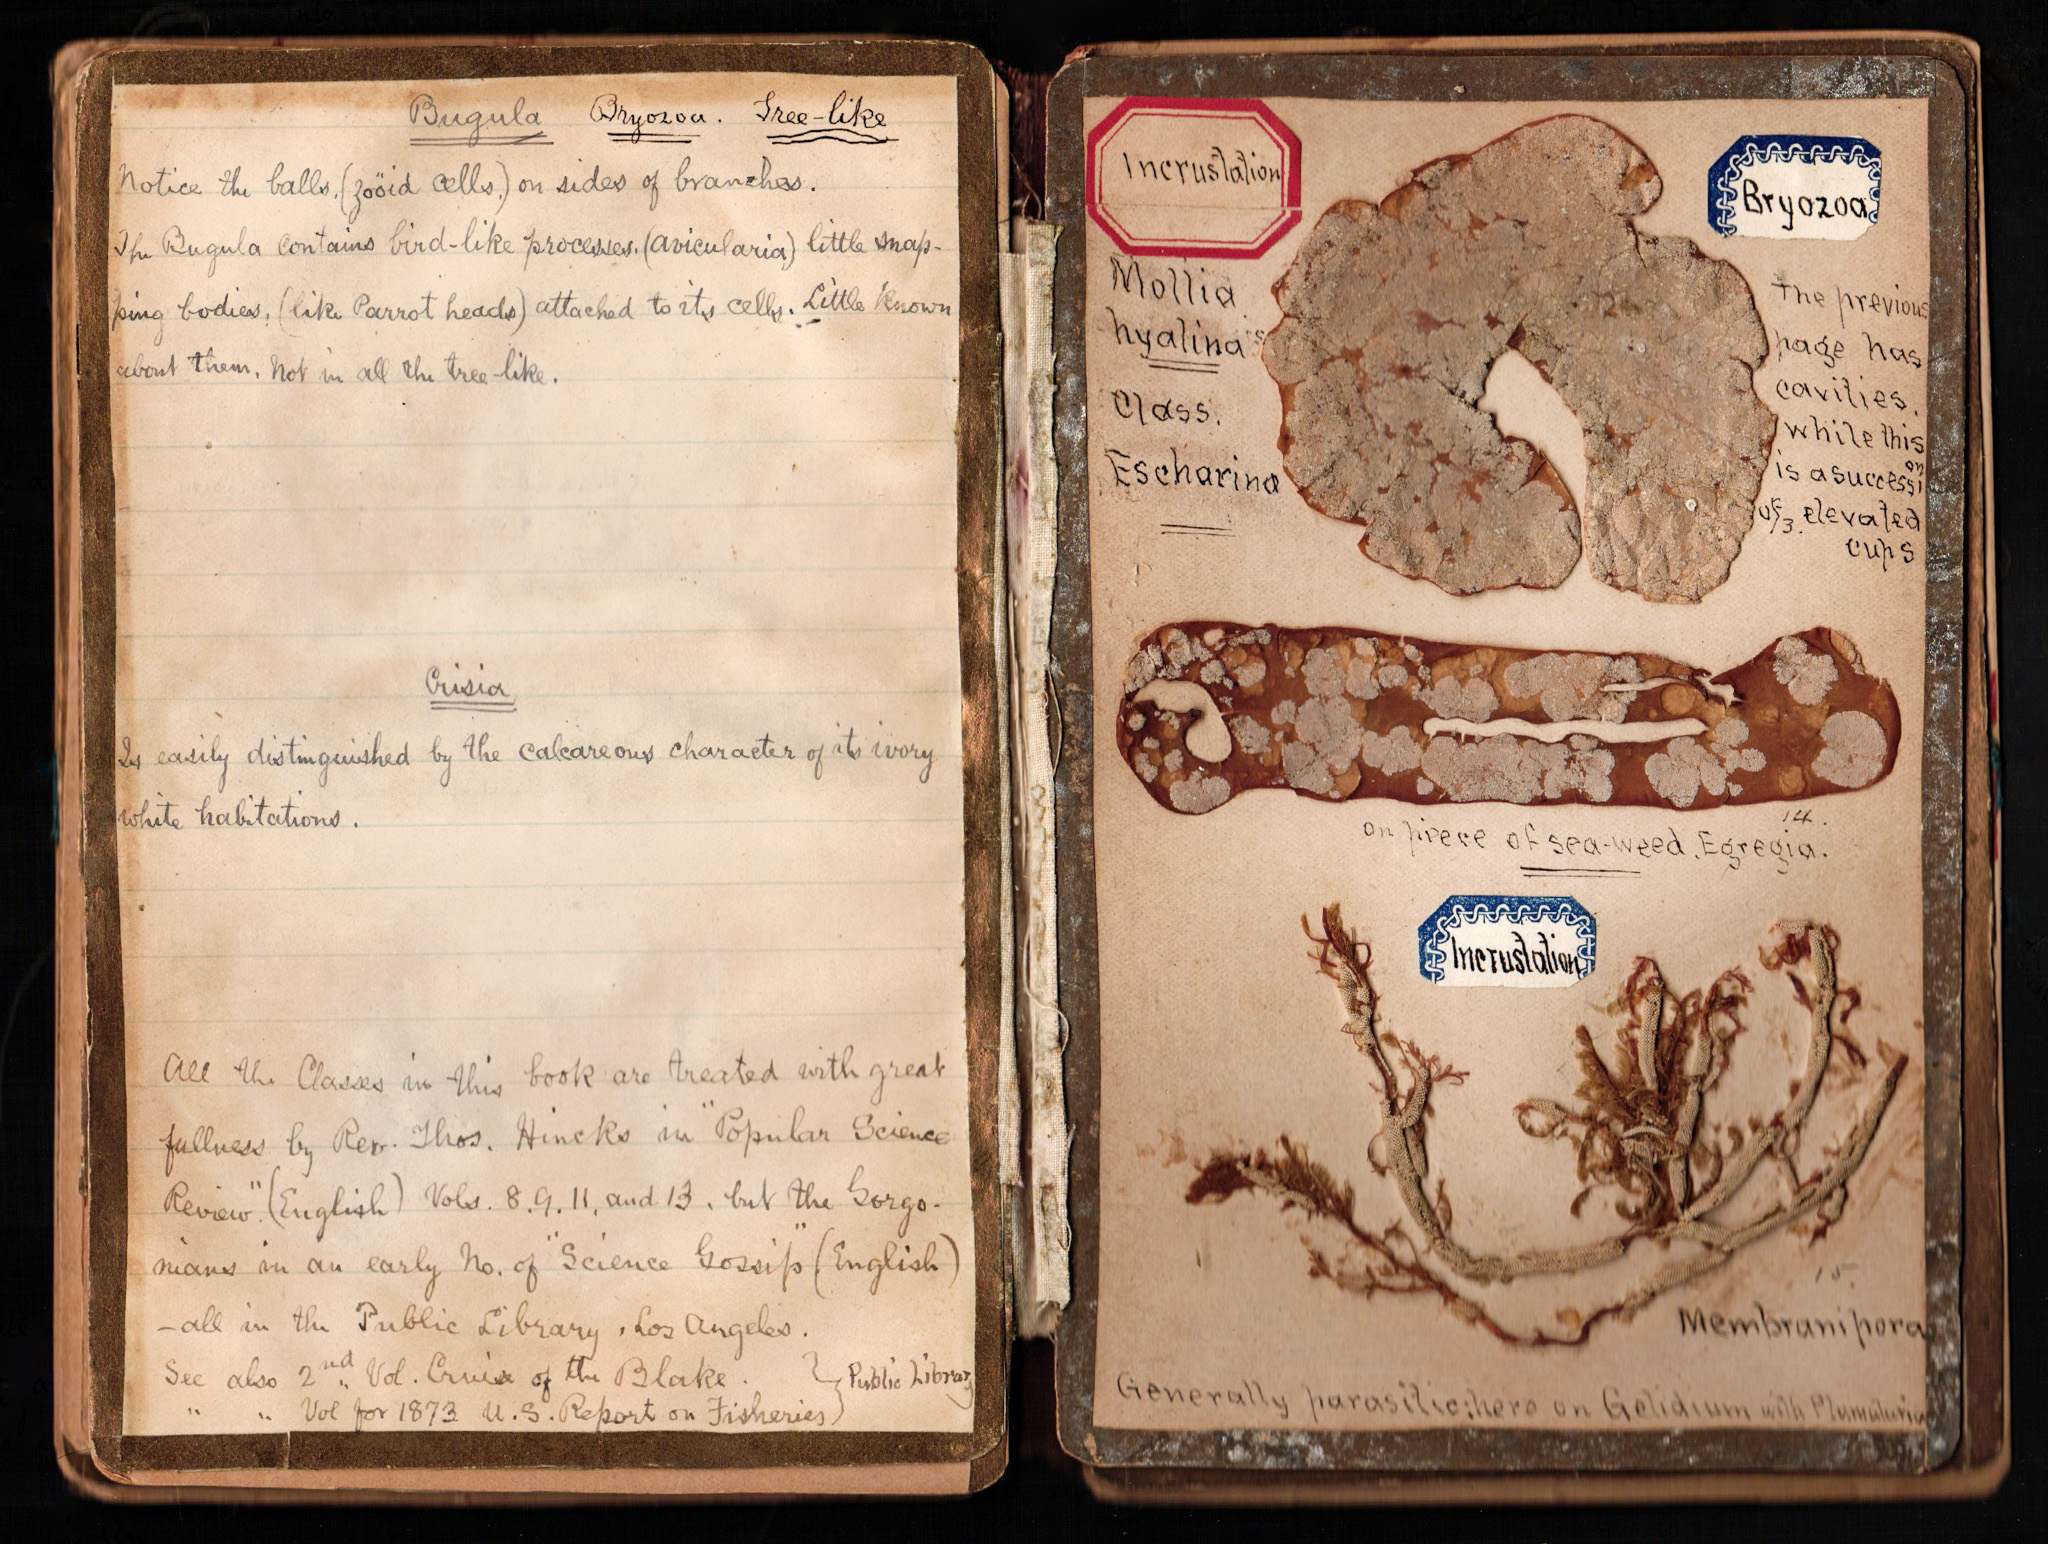 Bugula Bryozoa. Tree-like
Notice the balls, (zoöid cells,) on sides of branches.
The Bugula contains bird-like processes, (avicularia,) little snap-
ping bodies, (like Parrot heads) attached to its cells. Little known
about them. Not in all the tree-like.
Crisia
Is easily distinguished by the calcareous character of its ivory
white habitations.
All the Classes in this book are treated with great
fullness by Rev. Thos. Hincks in "Popular Science
Review" (English) Vols. 8. 9. 11, and 13, but the Gorgo-
nians in an early No. of "Science Gossip" (English)
- all in the Public Library, Los Angeles.
See also 2nd Vol. Cruise of the Blake.
" " Vol for 1873 U.S. Report on Fisheries
Public Library
Incrustation
Bryozoa
Mollia
hyalina's
Class.
Escharina
The previous
page has
cavities,
while this
is a succession
of elevated
cups
13.
14.
on piece of sea-weed, Egregia.
Incrustation
15.
Membranipora
Generally parasitic; here on Gelidium with Plumularia